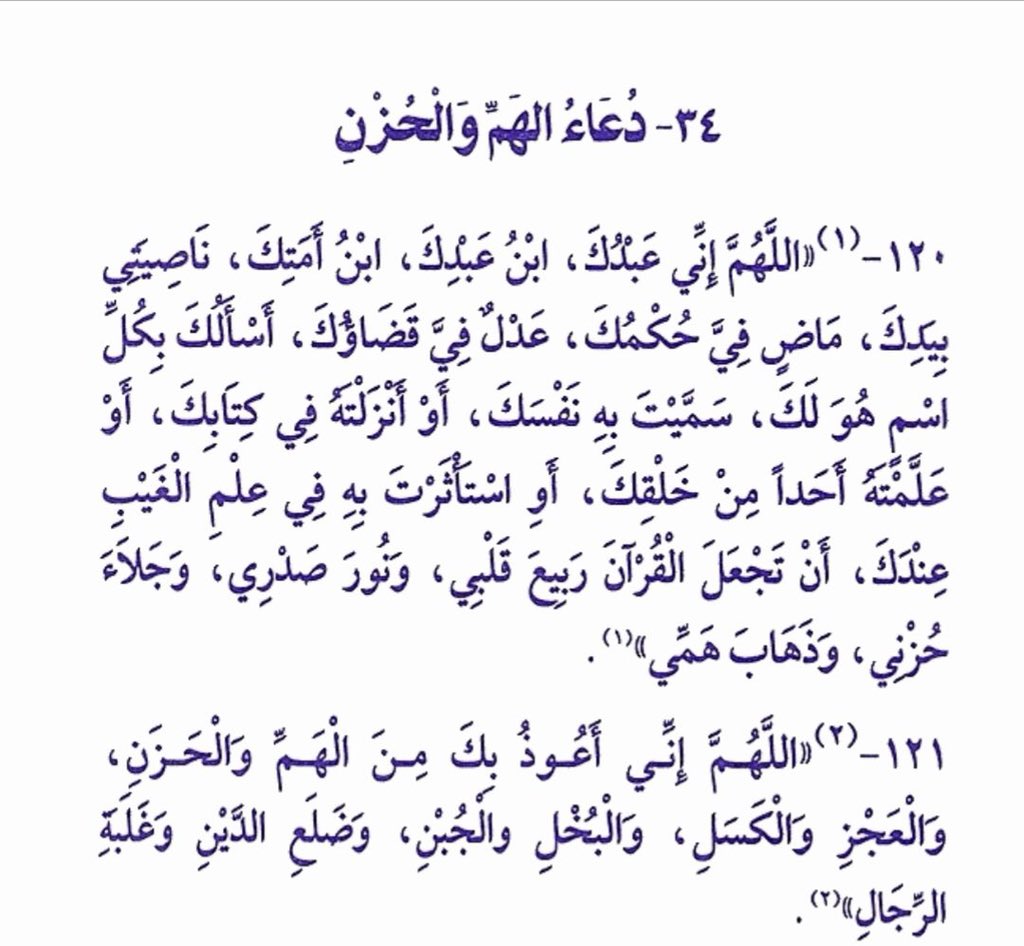 ٣٤- دُعَاءُ الهَمِّ وَالْحُزْنِ
١٢٠-(١)«اللَّهُمَّ إِنِّي عَبْدُكَ، ابْنُ عَبْدِكَ، ابْنُ أَمَتِكَ، نَاصِيَتِي
بِيَدِكَ، مَاضٍ فِيَّ حُكْمُكَ، عَدْلٌ فِيَّ قَضَاؤُكَ، أَسْأَلُكَ بِكُلِّ
اسْمٍ هُوَ لَكَ، سَمَّيْتَ بِهِ نَفْسَكَ، أَوْ أَنْزَلْتَهُ فِي كِتَابِكَ، أَوْ
عَلَّمْتَهُ أَحَداً مِنْ خَلْقِكَ، أَوِ اسْتَأْثَرْتَ بِهِ فِي عِلْمِ الْغَيْبِ
عِنْدَكَ، أَنْ تَجْعَلَ الْقُرْآنَ رَبِيعَ قَلْبِي، وَنُورَ صَدْرِي، وَجَلاَءَ
حُزْنِي، وَذَهَابَ هَمِّي»(١).
١٢١-(٢)«اللَّهُمَّ إِنِّي أَعُوذُ بِكَ مِنَ الْهَمِّ وَالْحَزَنِ،
وَالْعَجْزِ وَالْكَسَلِ، وَالْبُخْلِ والْجُبْنِ، وَضَلَعِ الدَّيْنِ وَغَلَبَةِ
الرِّجَالِ»(٢).